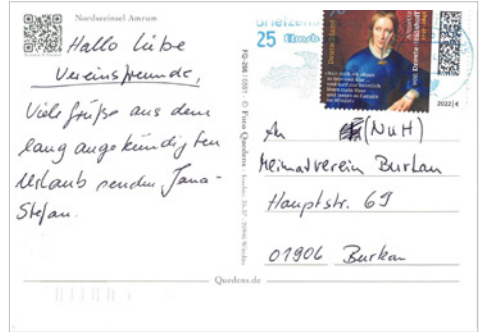 Nordseeinsel Amrum
Hallo liebe
Vereinsfreunde,
Viele Grüße aus dem
lang angekündigten
Urlaub senden Jana-
Stefan.
FQ-286 / 0551 · © Foto Quedens
Briefzen
25
Deutschland
Annette
von Droste-Hülshoff
2022 | €
An (NuH)
Heimatverein Burkau
Hauptstr. 69
01906 Burkau
Quedens.de